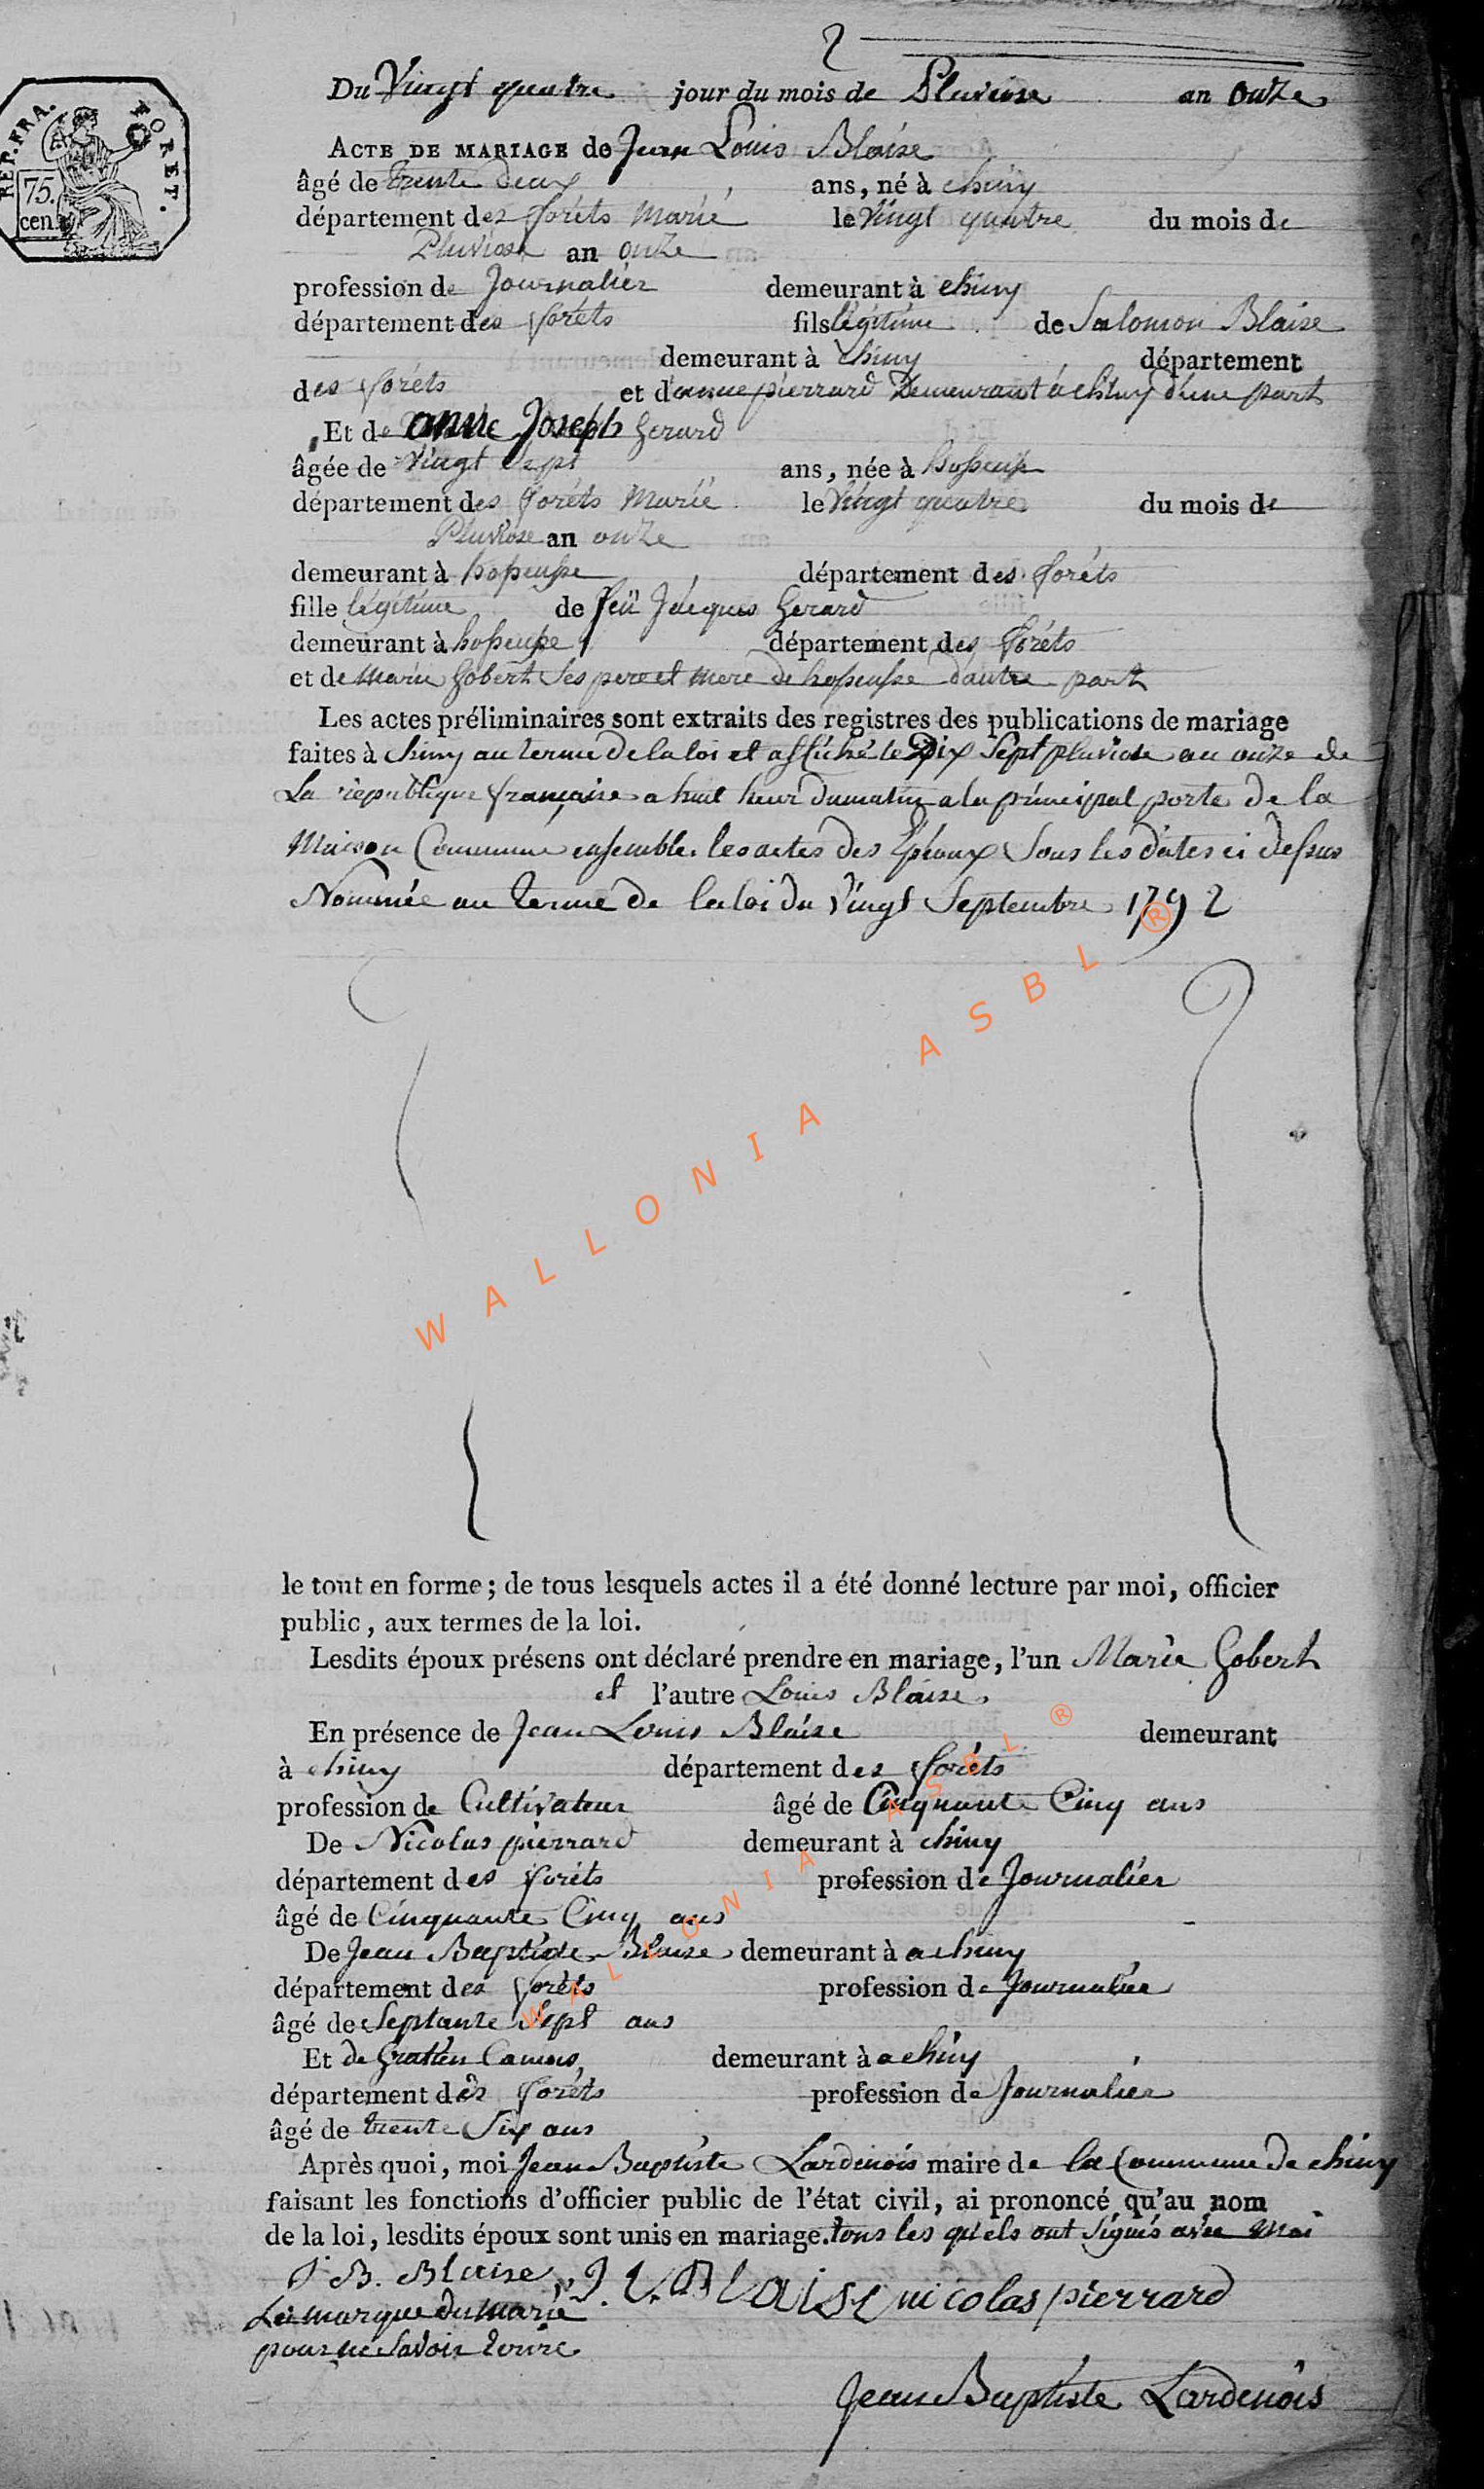 2
Du Vingt quatre jour du mois de Pluviose an onze
REP. FRA. FORET.
75. cen.
ACTE DE MARIAGE de Jean Louis Blaise
âgé de trente deux ans, né à chiny
département des forêts Marié le Vingt quatre du mois de
Pluviose an onze
profession de Journalier demeurant à chiny
département des forêts fils légitime de Salomon Blaise
demeurant à chiny département
des forêts et d'anne pierrard Demeurant à chiny d'une part
Et de anne Joseph Gerard
âgée de vingt sept ans, née à
département des forêts Marié le Vingt quatre du mois de
Pluviose an onze
demeurant à département des forêts
fille légitime de feü Jacques Gerard
demeurant à département des forêts
et de Marie Gobert Ses pere et mere de d'autre part
Les actes préliminaires sont extraits des registres des publications de mariage
faites à chiny au terme de la loi et affiché le Dix Sept pluviose an onze de
La république française a huit heur du matin a la principal porte de la
Maison Commune ensemble les actes des Epoux Sous les dates ci dessus
Nommée au terme de la loi du Vingt Septembre 1792
WALLONIA ASBL ®
le tout en forme ; de tous lesquels actes il a été donné lecture par moi, officier
public, aux termes de la loi.
Lesdits époux présens ont déclaré prendre en mariage, l'un Marie Gobert
et l'autre Louis Blaise.
En présence de Jean Louis Blaise demeurant
à chiny département des forêts
profession de Cultivateur âgé de Cinquante Cinq ans
De Nicolas pierrard demeurant à chiny
département des forêts profession de Journalier
âgé de Cinquante Cinq ans
De Jean Baptiste Blaise demeurant à a chiny
département des forêts profession de Journalier
âgé de Septante Sept ans
Et de Gratien demeurant à a chiny
département des forêts profession de Journalier
âgé de trente Six ans
Après quoi, moi Jean Baptiste Lardinois maire de la Commune de chiny
faisant les fonctions d'officier public de l'état civil, ai prononcé qu'au nom
de la loi, lesdits époux sont unis en mariage. tous les quels ont signés avec Moi
J. B. Blaise J. L. Blaise nicolas pierrard
La marque du marié
pour ne Savoir Ecrire
Jean Baptiste Lardenois
WALLONIA ASBL ®